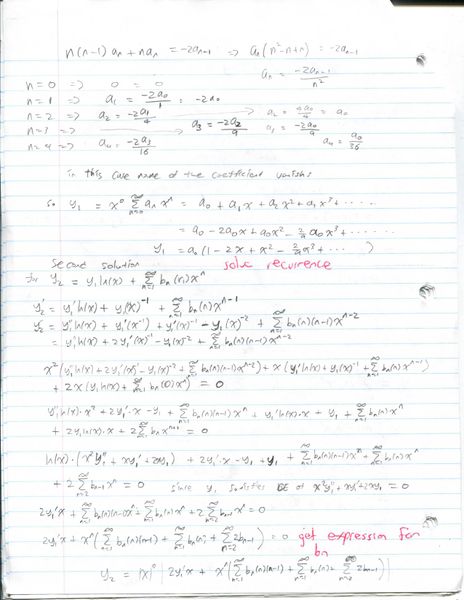 n(n-1) aₙ + naₙ = -2aₙ₋₁ ⇒ aₙ(n²-n+n) = -2aₙ₋₁
aₙ = -2aₙ₋₁/n²
n=0 ⇒ 0 = 0
n=1 ⇒ a₁ = -2a₀/1 = -2a₀
n=2 ⇒ a₂ = -2a₁/4 → a₂ = 4a₀/4 = a₀
n=3 ⇒ → a₃ = -2a₂/9 a₃ = -2a₀/9
n=4 ⇒ a₄ = -2a₃/16 a₄ = a₀/36
In this case none of the coefficient vanish
So y₁ = x⁰ Σ aₙ xⁿ = a₀ + a₁x + a₂x² + a₃x³ + ......
= a₀ - 2a₀x + a₀x² - 2/9 a₀x³ + .....
y₁ = a₀(1 - 2x + x² - 2/9 x³ + .... )
Second solution solve recurrence
for y₂ = y₁ ln(x) + Σ bₙ(r₁)xⁿ
y₂' = y₁' ln(x) + y₁(x)⁻¹ + Σ bₙ(n)xⁿ⁻¹
y₂'' = y₁'' ln(x) + y₁'(x⁻¹) + y₁'(x)⁻¹ - y₁(x)⁻² + Σ bₙ(n)(n-1)xⁿ⁻²
= y₁'' ln(x) + 2y₁'(x)⁻¹ - y₁(x)⁻² + Σ bₙ(n)(n-1)xⁿ⁻²
x²(y₁'' ln(x) + 2y₁'(x)⁻¹ - y₁(x)⁻² + Σ bₙ(n)(n-1)xⁿ⁻²) + x(y₁' ln(x) + y₁(x)⁻¹ + Σ bₙ(n)xⁿ⁻¹)
+ 2x(y₁ ln(x) + Σ bₙ(0)xⁿ) = 0
y₁'' ln(x)·x² + 2y₁'·x - y₁ + Σ bₙ(n)(n-1)xⁿ + y₁' ln(x)·x + y₁ + Σ bₙ(n)·xⁿ
+ 2y₁ ln(x)·x + 2Σ bₙ xⁿ⁺¹ = 0
ln(x)·(x²y₁'' + xy₁' + 2xy₁) + 2y₁'·x - y₁ + y₁ + Σ bₙ(n)(n-1)xⁿ + Σ bₙ(n)xⁿ
+ 2 Σ bₙ₋₁ xⁿ = 0 since y₁ satisfies DE of x²y₁'' + xy₁' + 2xy₁ = 0
2y₁'x + Σ bₙ(n)(n-1)xⁿ + Σ bₙ(n)xⁿ + 2Σ bₙ₋₁xⁿ = 0
2y₁'x + xⁿ(Σ bₙ(n)(n-1) + Σ bₙ(n) + Σ 2bₙ₋₁) = 0 get expression for
bₙ
y₂ = |x|⁰ | 2y₁'x + xⁿ(Σ bₙ(n)(n-1) + Σ bₙ(n) + Σ 2bₙ₋₁)|